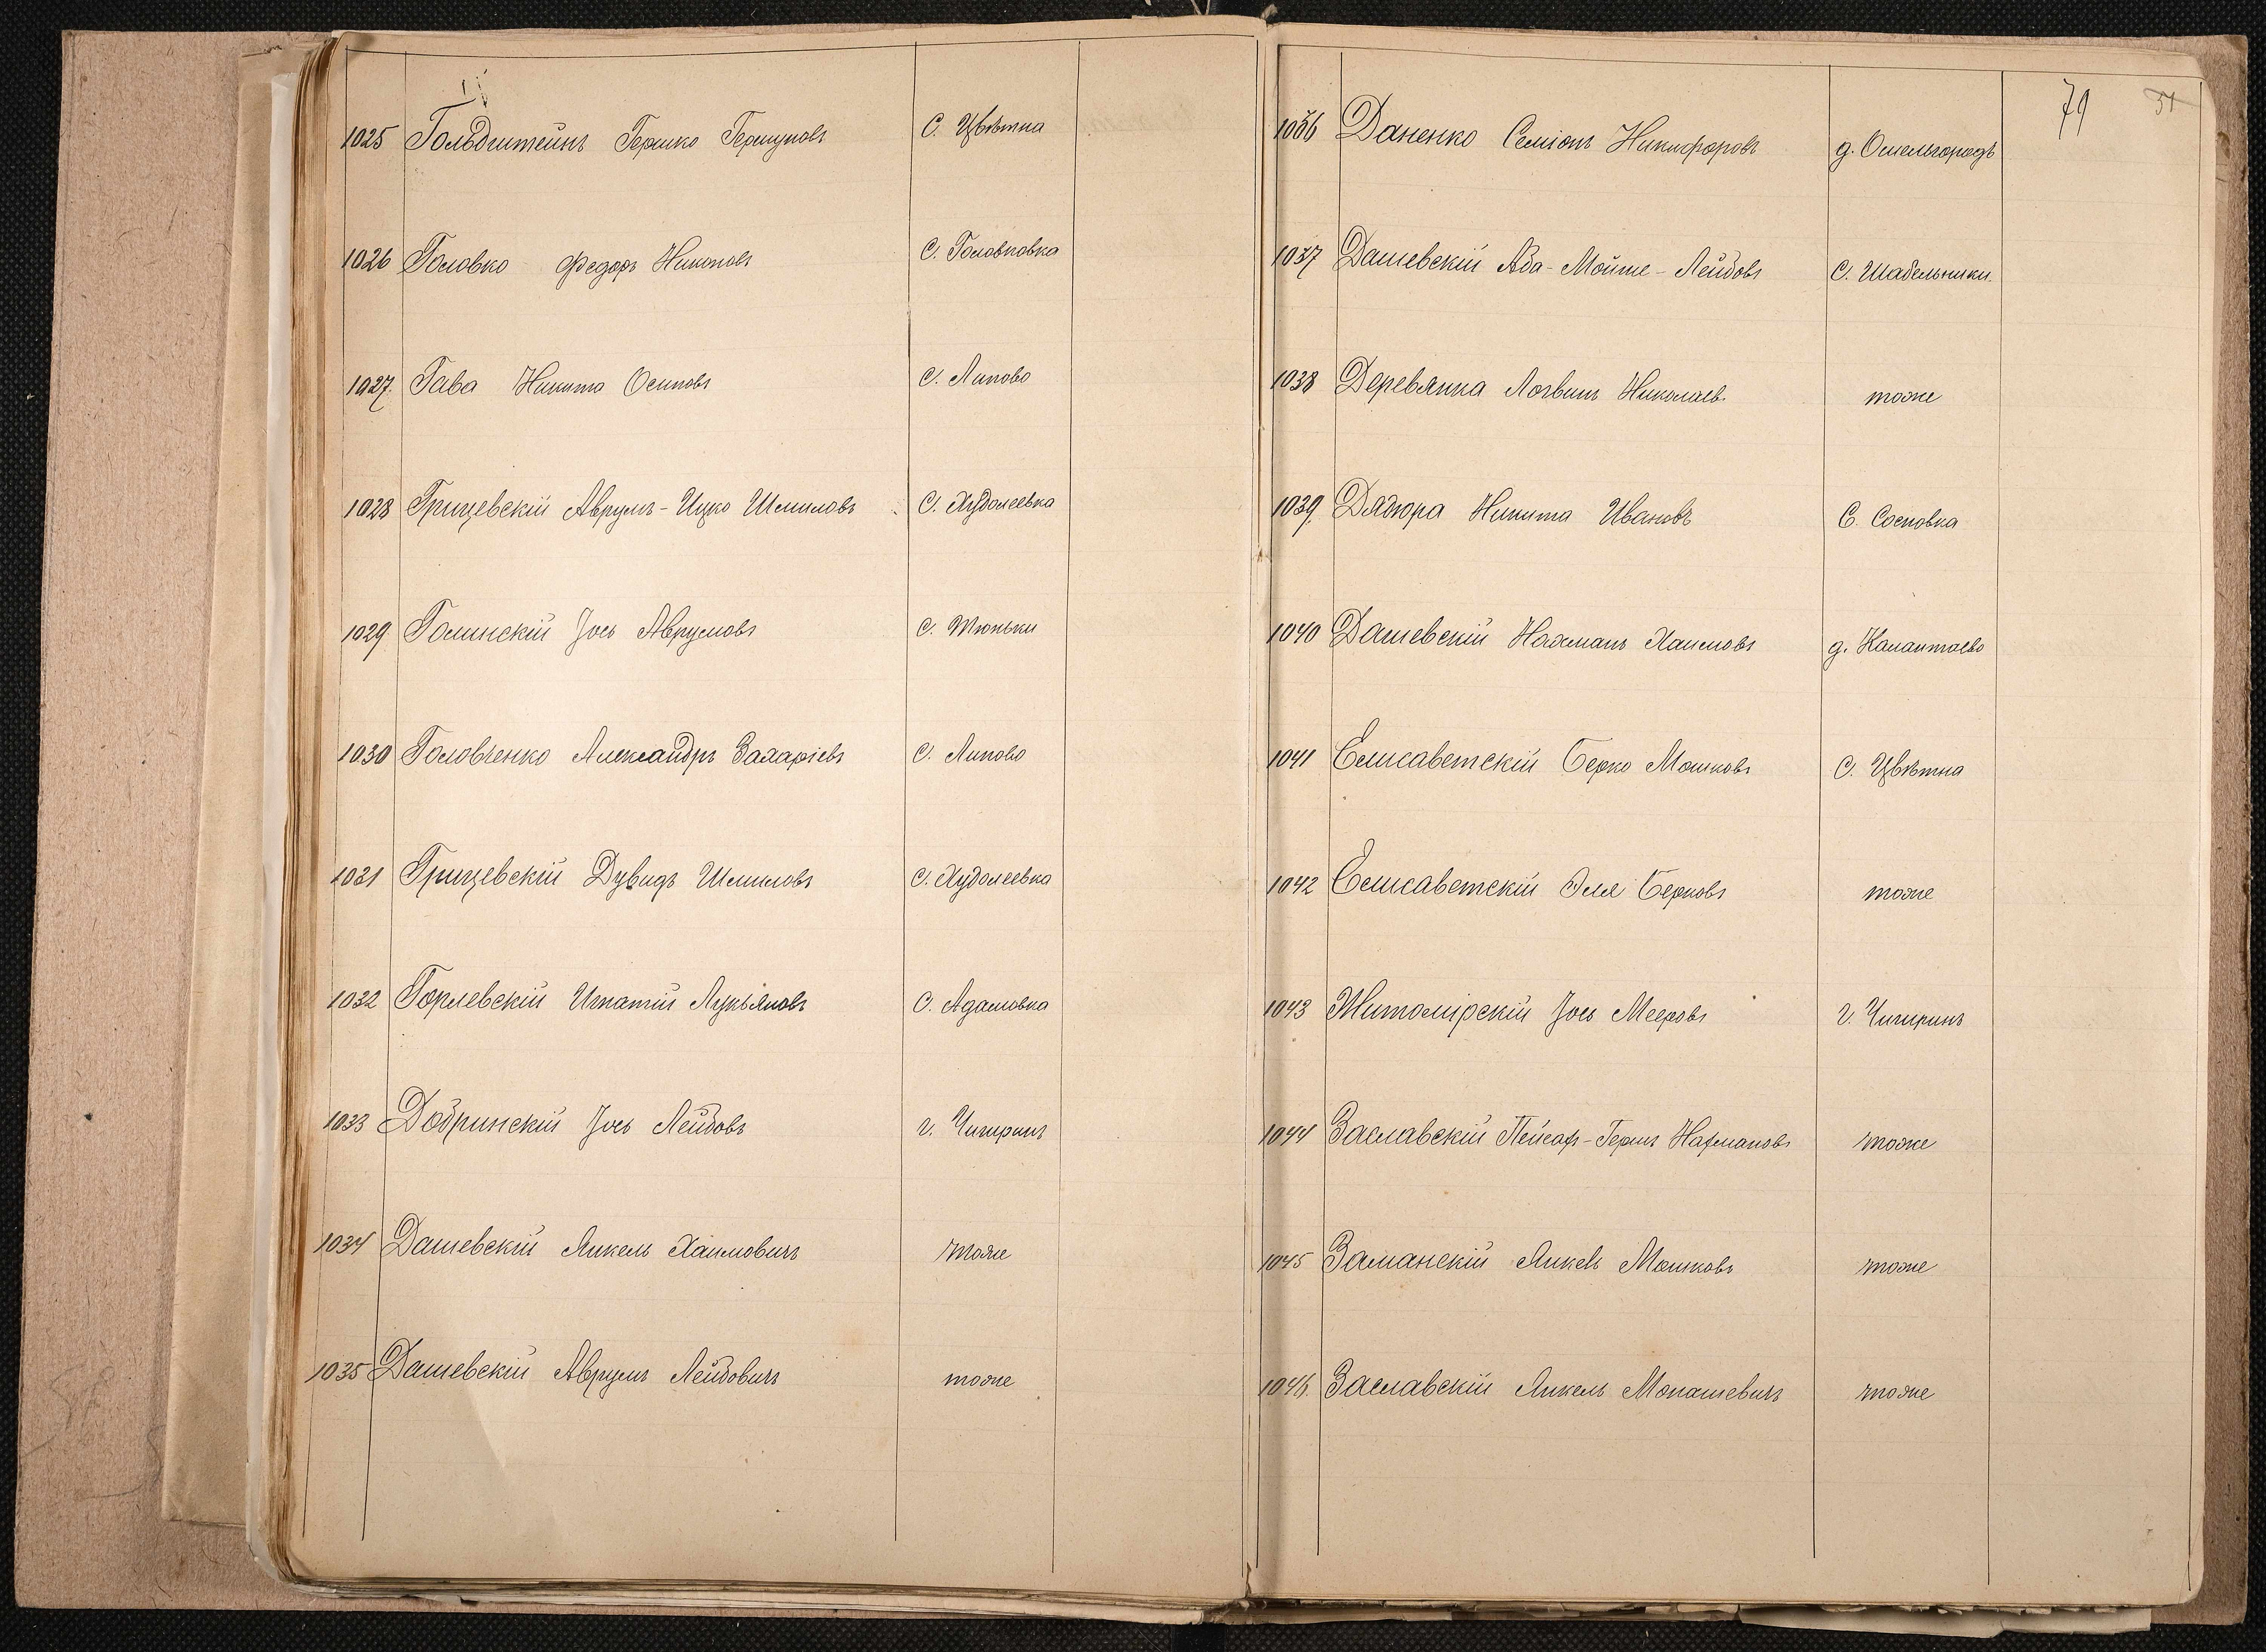 1025 Гольдштейнъ Гершко Гершуновъ С. Цвѣтна
1026 Головко Федоръ Никоновъ С. Головковка
1027. Гава Никита Осиповъ С. Липово
1028 Грищевскій Аврумъ-Ицко Шмиловъ С. Худолеевка
1029 Голинскій Іось Аврумовъ С. Тюньки
1030 Головченко Александръ Захаріевъ С. Липово
1031 Грищевскій Дувидъ Шмиловъ С. Худолеевка
1032 Горлевскій Игнатій Лукьяновъ С. Адамовка
1033 Добринскій Іось Лейбовъ г. Чигиринъ
1034 Дашевскій Янкель Хаимовичъ тоже
1035 Дашевскій Аврумъ Лейбовичъ тоже
79
1036 Даненко Семіонъ Никифоровъ д. Омельгородъ
1037 Дашевскій Аба-Мойше-Лейбовъ С. Шабельники.
1038 Деревянка Логвинъ Николаев. тоже
1039. Дядюра Никита Ивановъ С. Сосновка
1040 Дашевскій Нахманъ Хаимовъ д. Калантаево
1041 Елисаветскій Берко Мошковъ С. Цвѣтна
1042 Елисаветскій Эля Берковъ тоже
1043 Житомірскій Іось Мееровъ г. Чигиринъ
1044 Заславскій Пейсах-Гершъ Нахмановъ тоже
1045 Заманскій Янкель Мошковъ тоже
1046. Заславскій Янкель Монашевичъ тоже